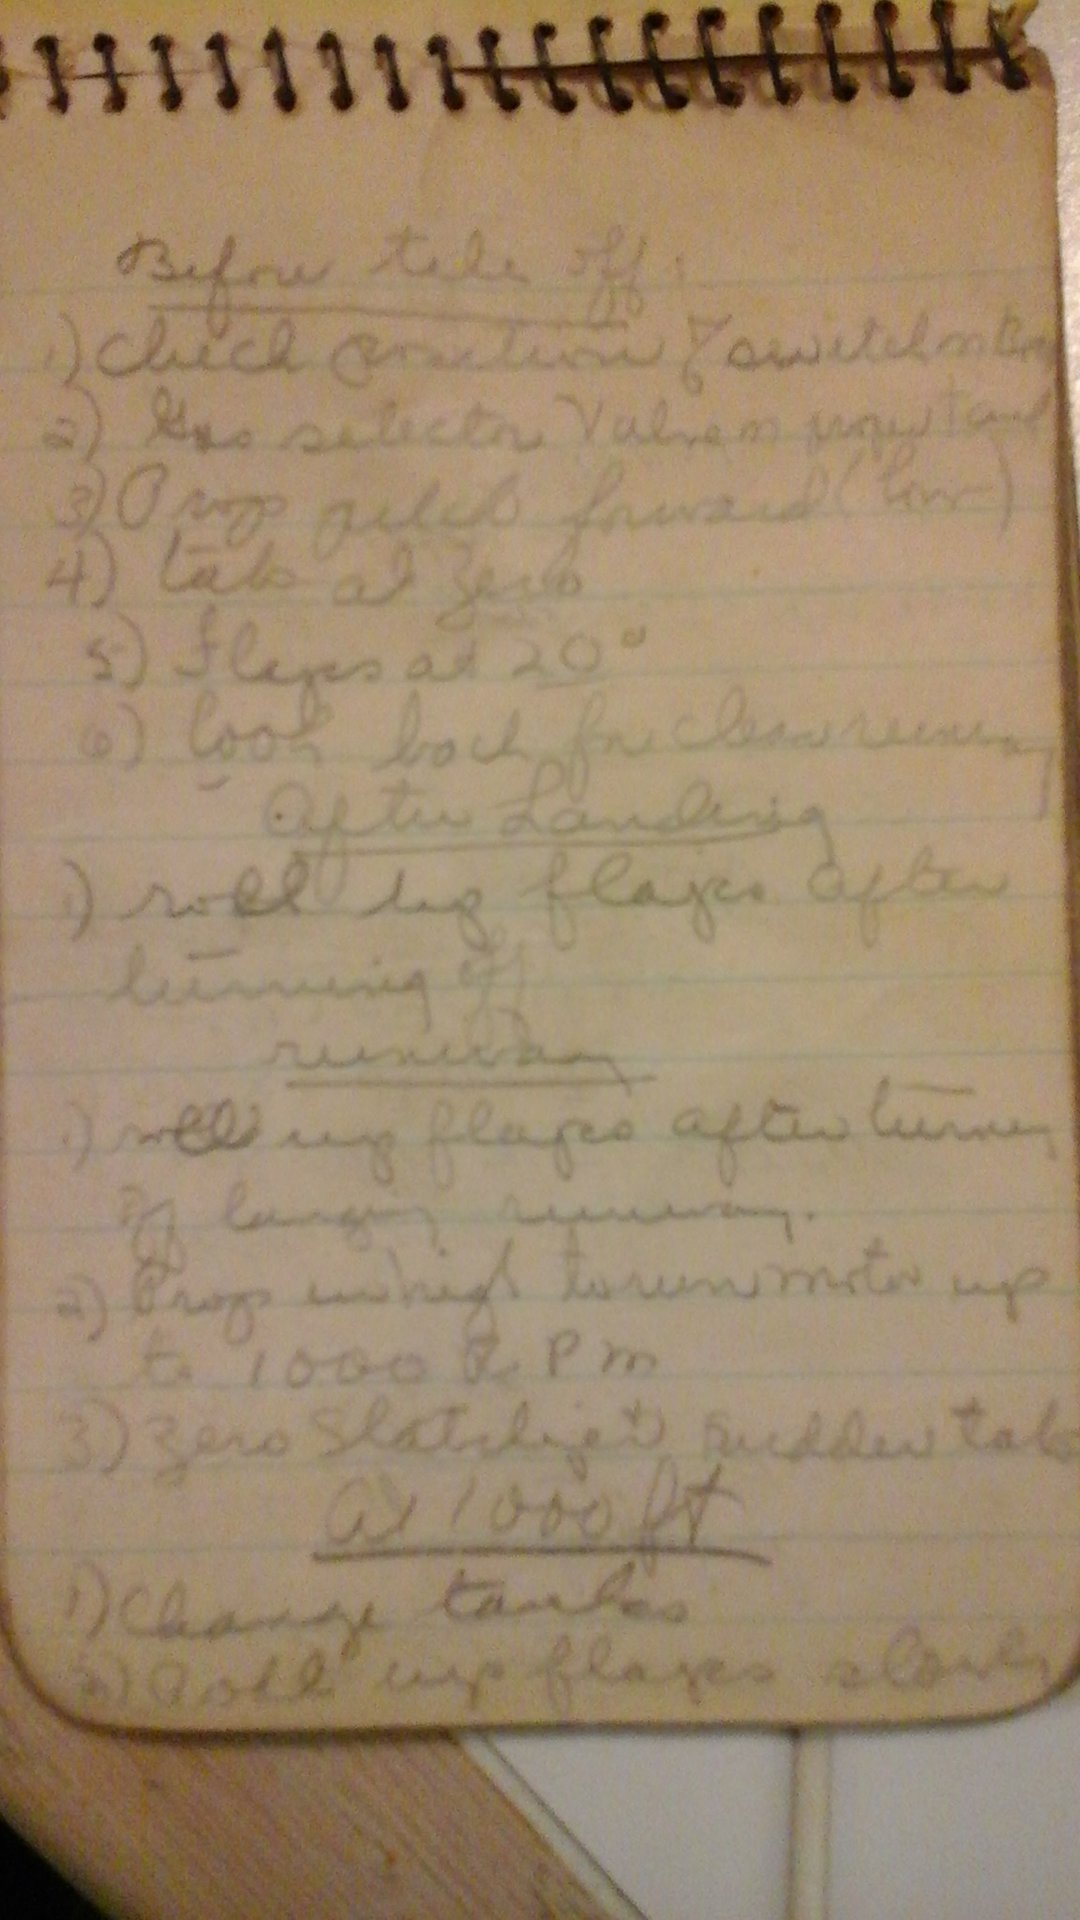 Before take off:
1) Check position of switch on
2) Gas selector Valve on proper tank
3) Prop pitch forward (low)
4) tab at zero
5) Flaps at 20°
6) look back for clear runway
After Landing
1) roll up flaps after
turning off
runway
1) roll up flaps after turning
off landing runway.
2) Prop in high to run motor up
to 1000 R.P.m
3) Zero rudder tab
At 1000 ft
1) Change tanks
2) Roll up flaps slowly